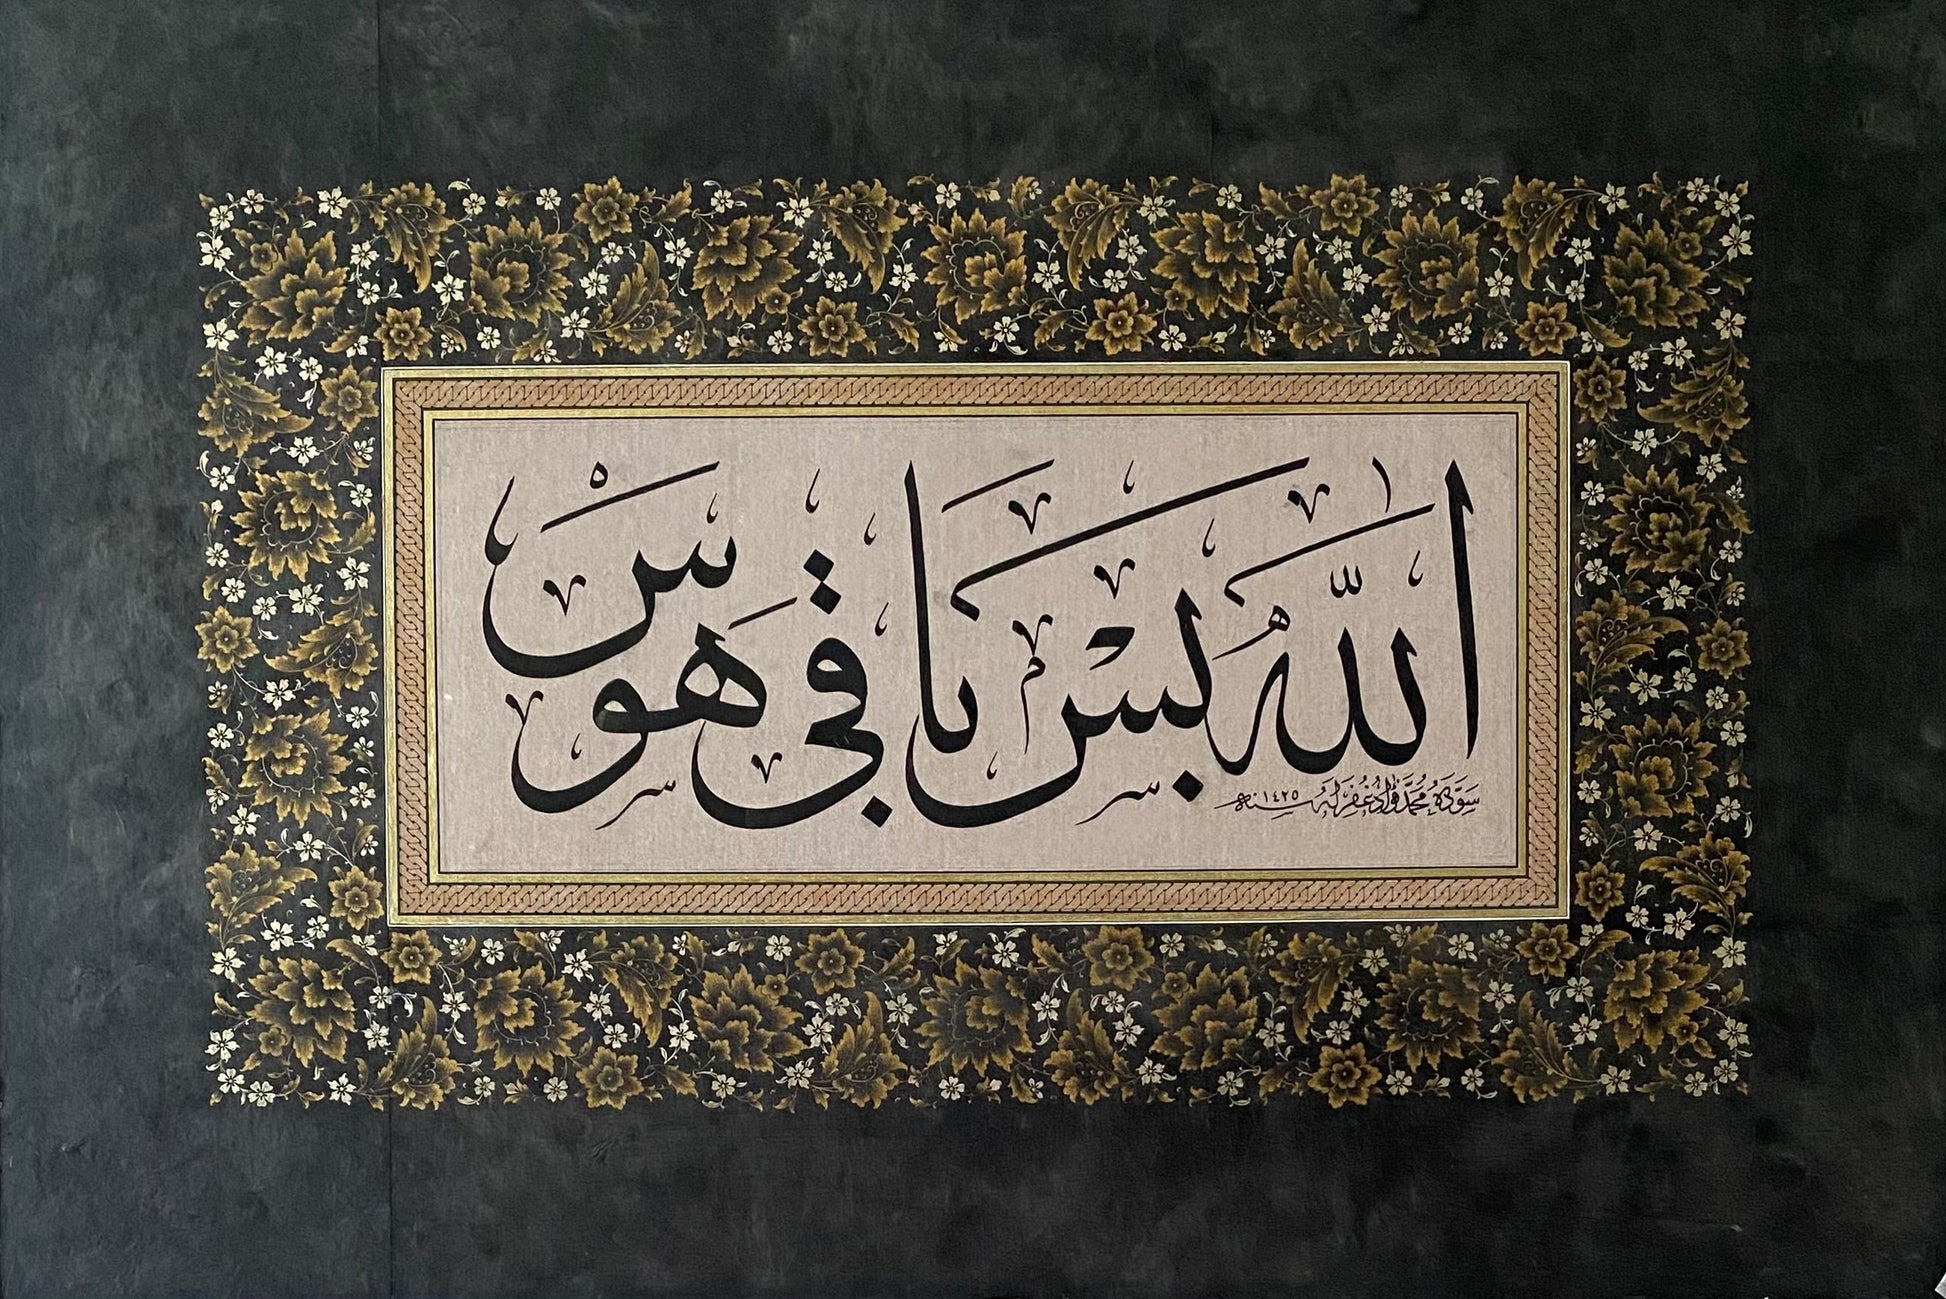 اللّٰه بَسْ باقی هَوَسْ
سَوَّدَهُ مُحَمَّد فُؤاد غُفِرَ لَهُ سنه ١٤٢٥